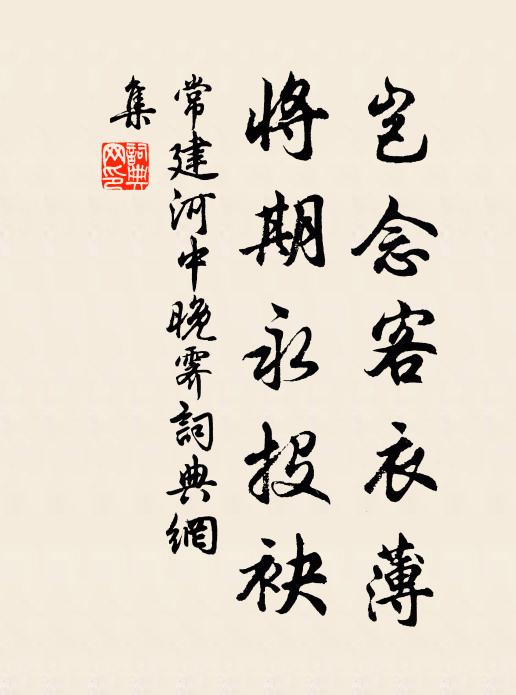 岂念客衣薄
将期永投袂
常建河中晚霽詞典網
集
詞典網印